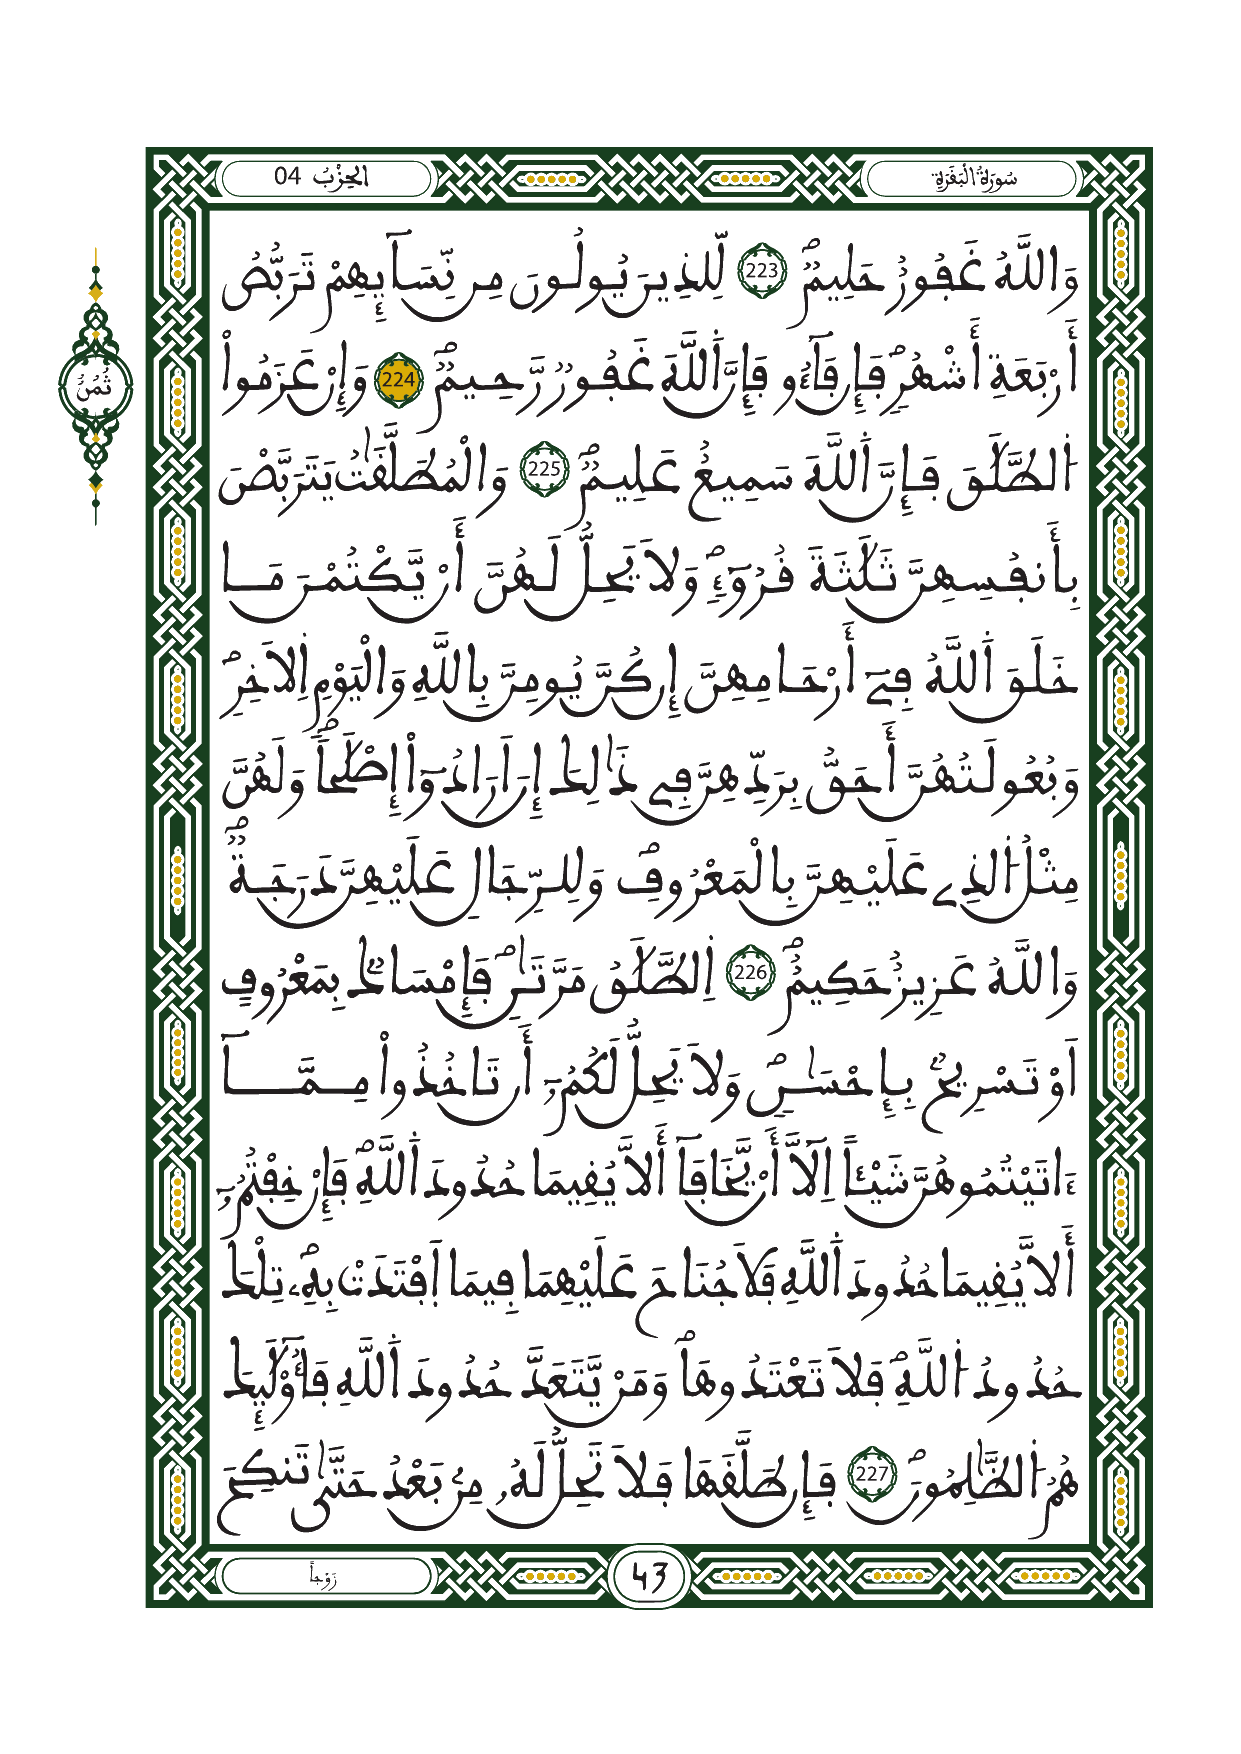 سُورَةُ الْبَقَرَةِ
الحِزْبُ 04
وَاللَّهُ غَفُورٌ حَلِيمٌ 223 لِّلذِينَ يُولُونَ مِن نِّسَآئِهِمْ تَرَبُّصُ
أَرْبَعَةِ أَشْهُرٍ فَإِن فَآءُو فَإِنَّ اَ۬للَّهَ غَفُورٌ رَّحِيمٌ 224 وَإِنْ عَزَمُواْ
ثُمُنُ
اُ۬لطَّلَٰقَ فَإِنَّ اَ۬للَّهَ سَمِيعٌ عَلِيمٌ 225 وَالْمُطَلَّقَٰتُ يَتَرَبَّصْنَ
بِأَنفُسِهِنَّ ثَلَٰثَةَ قُرُوٓءٍ وَلَا يَحِلُّ لَهُنَّ أَنْ يَّكْتُمْنَ مَا
خَلَقَ اَ۬للَّهُ فِےٓ أَرْحَامِهِنَّ إِن كُنَّ يُومِنَّ بِاللَّهِ وَالْيَوْمِ اِ۬لَاخِرِ
وَبُعُولَتُهُنَّ أَحَقُّ بِرَدِّهِنَّ فِے ذَٰلِكَ إِنَ اَرَادُوٓاْ إِصْلَٰحاً وَلَهُنَّ
مِثْلُ اُ۬لذِے عَلَيْهِنَّ بِالْمَعْرُوفِ وَلِلرِّجَالِ عَلَيْهِنَّ دَرَجَةٌ
وَاللَّهُ عَزِيزٌ حَكِيمٌ 226 اِ۬لطَّلَٰقُ مَرَّتَٰنِ فَإِمْسَاكٌ بِمَعْرُوفٍ
اَوْ تَسْرِيحٌ بِإِحْسَٰنٍ وَلَا يَحِلُّ لَكُمُۥٓ أَن تَاخُذُواْ مِمَّآ
ءَاتَيْتُمُوهُنَّ شَيْـًٔا اِلَّآ أَنْ يَّخَافَآ أَلَّا يُقِيمَا حُدُودَ اَ۬للَّهِ فَإِنْ خِفْتُمُۥٓ
أَلَّا يُقِيمَا حُدُودَ اَ۬للَّهِ فَلَا جُنَاحَ عَلَيْهِمَا فِيمَا اَ۪فْتَدَتْ بِهِۦ تِلْكَ
حُدُودُ اُ۬للَّهِ فَلَا تَعْتَدُوهَا وَمَنْ يَّتَعَدَّ حُدُودَ اَ۬للَّهِ فَأُوْلَٰٓئِكَ
هُمُ اُ۬لظَّٰلِمُونَ 227 فَإِن طَلَّقَهَا فَلَا تَحِلُّ لَهُۥ مِنۢ بَعْدُ حَتَّىٰ تَنكِحَ
43
زَوْجاً